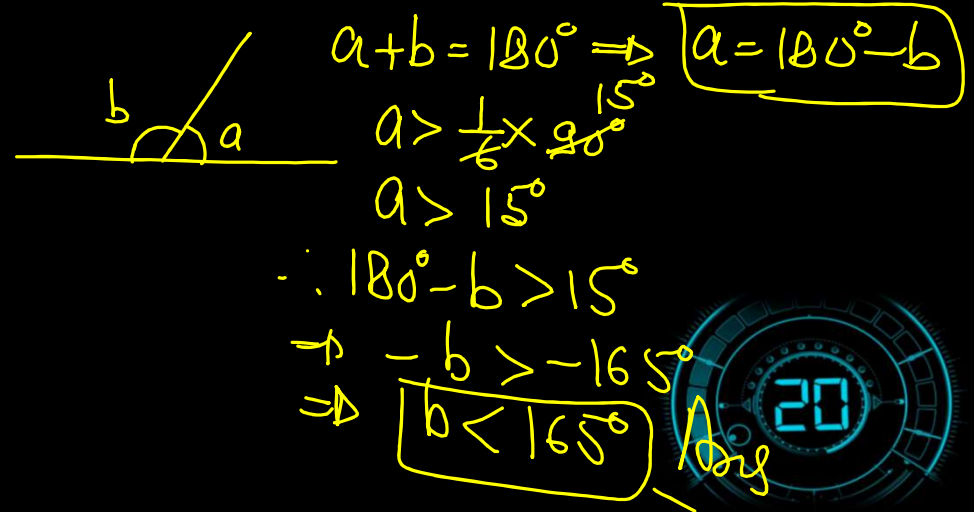 a+b=180° ⇒ a=180°−b
b
a
15°
a > 1/6 × 90°
a > 15°
∴ 180°−b > 15°
⇒ −b > −165°
⇒ b < 165° Ans
20